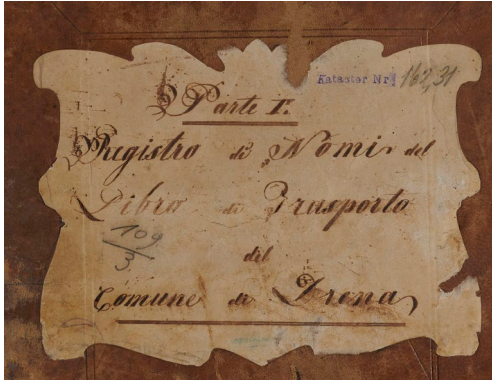 Kataster Nr. 162,31
Parte I.ª
Registro di Nomi del
Libro di Trasporto
109/3
del
Comune di Drena